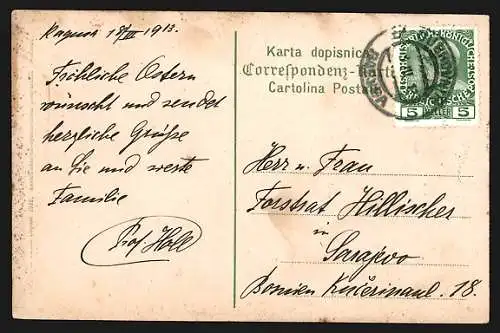 Ragusa 18/III 1913.
Fröhliche Ostern
wünscht und sendet
herzliche Grüße
an Sie und werte
Familie
Prof. Holl
Karta dopisnica
Correspondenz-Karte
Cartolina Postale
5 5
Herr u. Frau
Forstrat Hillischer
in
Sarajevo
Bosnien 18.